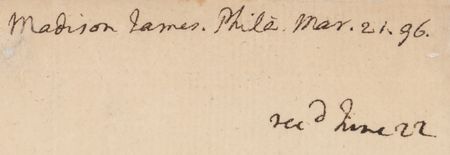 Madison James. Philã. Mar. 21. 96.
recd June 22